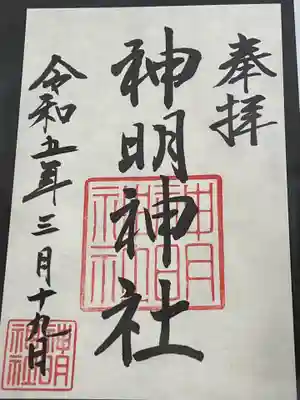 奉拝
神明神社
令和五年三月十九日
神明神社
神明神社